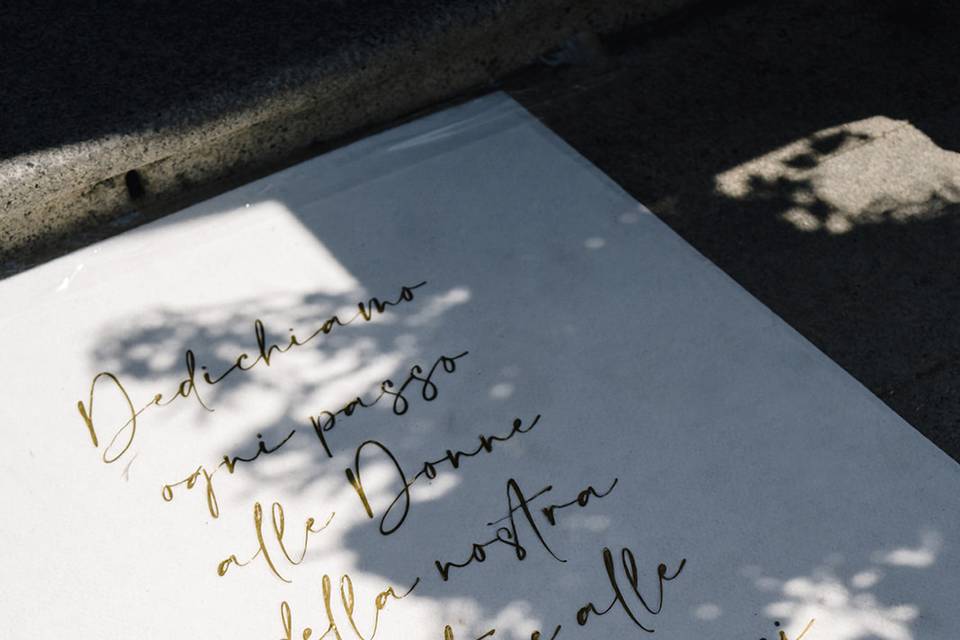 Dedichiamo
ogni passo
alle Donne
della nostra
alle